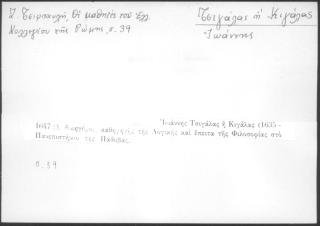 Ζ. Τσιρπανλῆ, Οἱ μαθητές τοῦ Ἑλλ.
Κολλεγίου τῆς Ρώμης, σ. 39
Τσιγάλας ἤ Κιγάλας
Ἰωάννης
Ἰωάννης Τσιγάλας ἢ Κιγάλας (1635 -
1687 ;). καθηγητὴς τῆς Λογικῆς καὶ ἔπειτα τῆς Φιλοσοφίας στὸ
Πανεπιστήμιο τῆς Πάδοβας.
σ. 39